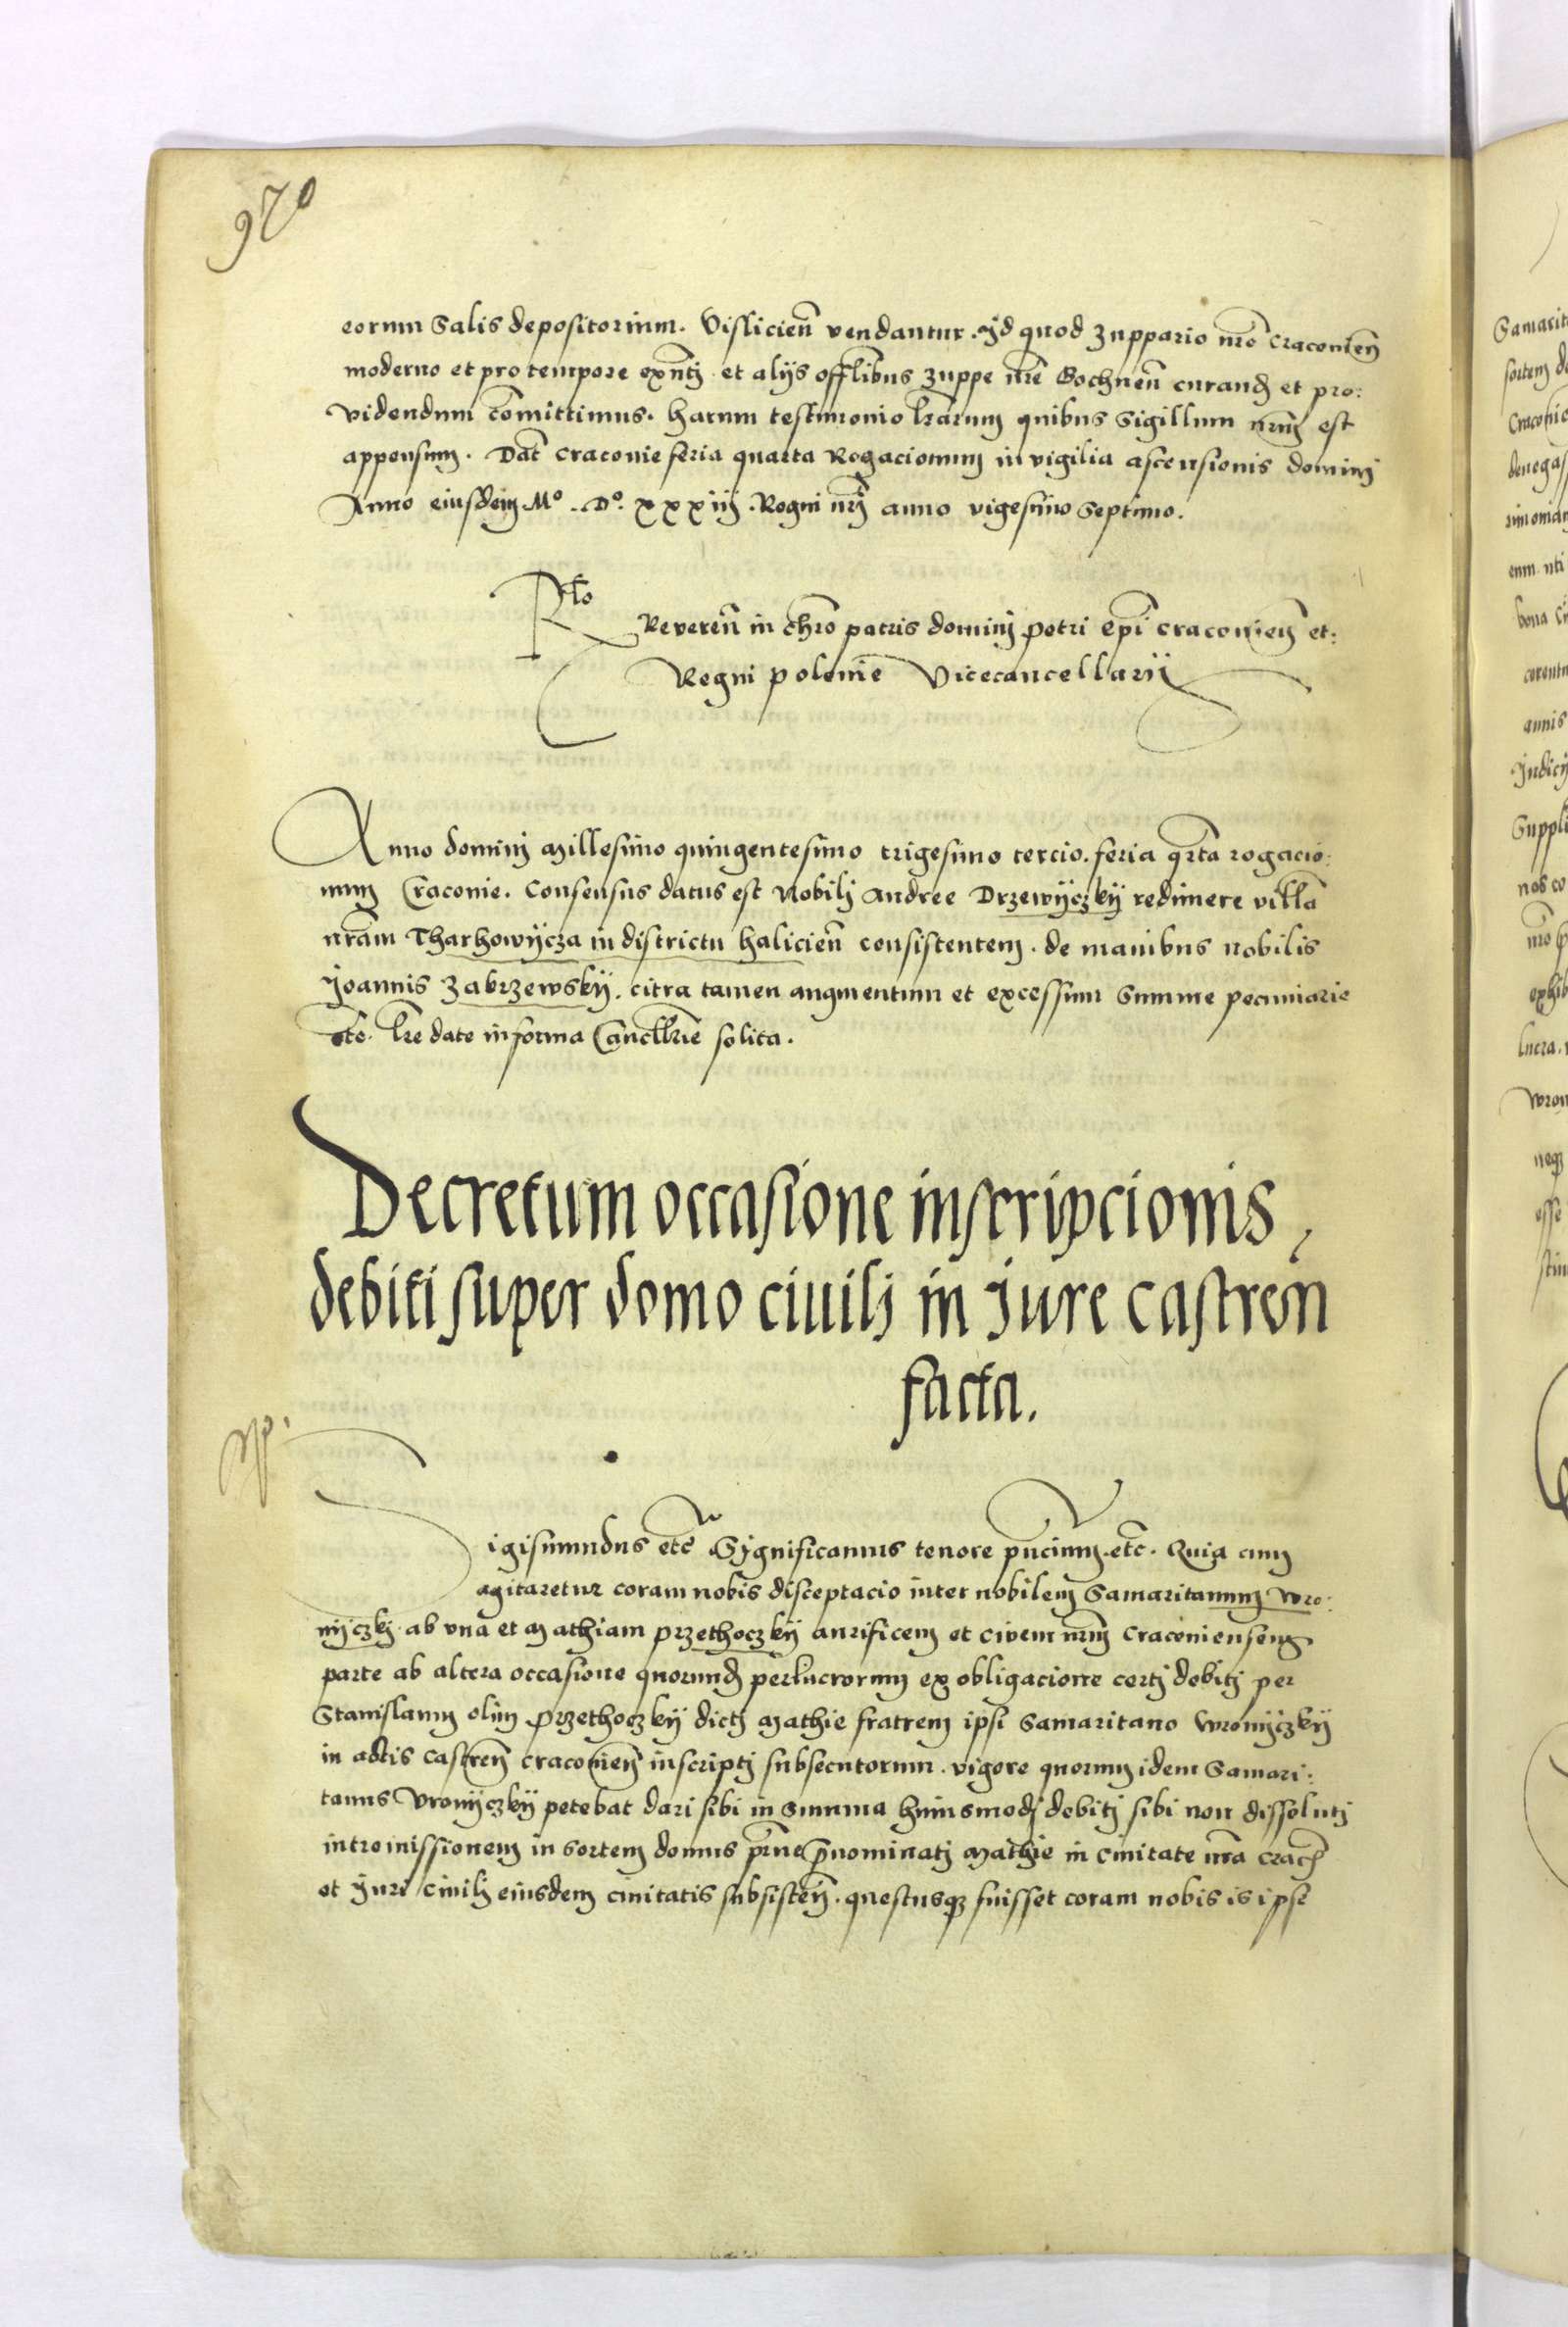 970
eorum Salis depositorium. Vislicieñ vendantur. Jd quod zuppario nro Cracovieñ
moderno et pro tempore exñtj et alÿs offlibus zuppe nre Bochneñ curand et pro:
videndum comittimus. harum testimonio lrarum quibus Sigillum nrum est
appensum. Dat Cracovie feria quarta Rogacionum in vigilia ascensionis dominj
Anno eiusdem Mº. Dº. xxxiij. Regni nrj anno vigesimo Septimo.
Rlo
Revereñ in chro patris dominj petri Epi cracovieñ et:
Regni polonie Vicecancellarÿ
Anno dominj Millesimo quingentesimo trigesimo tercio. feria qrta rogacio:
num Cracovie. Consensus datus est Nobilj Andree Drzewÿczkÿ redimere villa
nram Tharhowÿcza in districtu halicieñ consistentem. de manibus nobilis
Joannis Zabrzewskÿ. citra tamen augmentum et excessum Summe pecuniarie
etc. lre date in forma Cancllrie solita.
Decretum occasione inscripcionis,
debiti super domo ciuilj in Jure castreñ
facta.
Sigismundus etc Sÿgnificamus tenore pñcium. etc. Quia cum
agitaretur coram nobis disceptacio inter nobilem Samaritanum Wro:
nÿczkj ab vna et Mathiam przethoczkÿ aurificem et civem nrum Cracoviensem
parte ab altera occasione quorund perlucrorum ex obligacione certj debitj per
Stanislaum olim przethoczkÿ dictj Mathie fratrem ipsi Samaritano Wronÿczkÿ
in actis castreñ cracovieñ inscriptj subsecutorum. vigore quorum idem Samari:
tanus Vronÿczkÿ petebat dari sibi in Summa huiusmodj debitj sibi non dissolutj
intromissionem in sortem domus prne pnominatj Mathie in Ciuitate nra Crac
et Jure Ciuilj eiusdem ciuitatis subsisteñ. questusq fuisset coram nobis is ipse